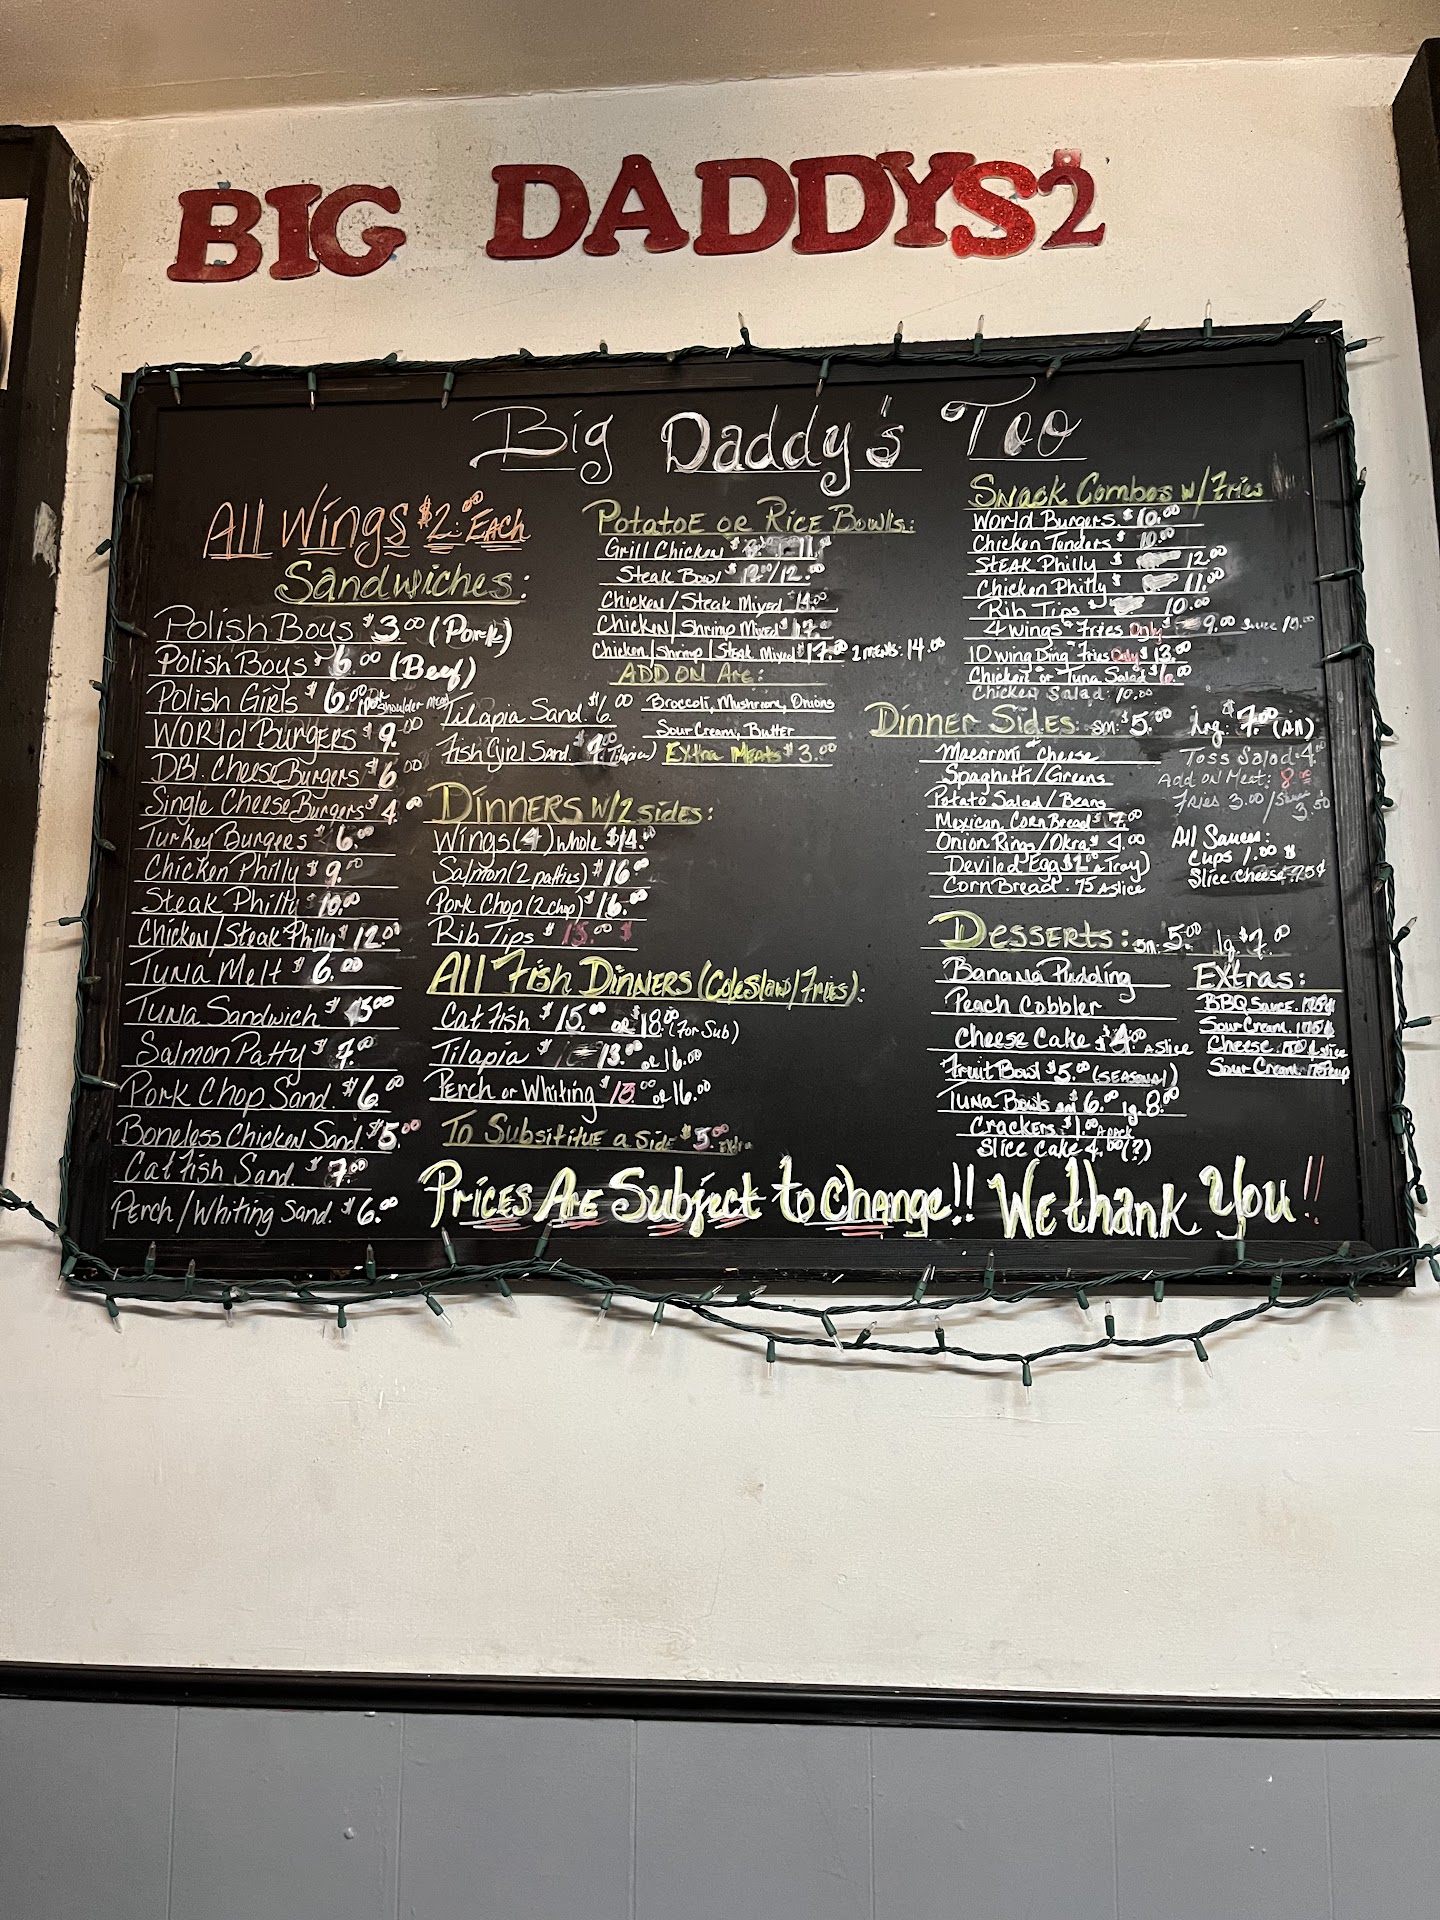 BIG DADDYS2
Big Daddy's Too
All Wings $2.00 Each
Sandwiches:
Polish Boys $3.00 (Pork)
Polish Boys $6.00 (Beef)
Polish Girls $6.00 Shoulder Meat
World Burgers $9.00
Dbl. Cheese Burgers $6.00
Single Cheese Burgers $4.00
Turkey Burgers $6.00
Chicken Philly $9.00
Steak Philly $10.00
Chicken/Steak Philly $12.00
Tuna Melt $6.00
Tuna Sandwich $5.00
Salmon Patty $7.00
Pork Chop Sand. $6.00
Boneless Chicken Sand. $5.00
Catfish Sand. $7.00
Perch/Whiting Sand. $6.00
Tilapia Sand. $6.00
Fish Girl Sand. (Tilapia)
Potatoe or Rice Bowls:
Grill Chicken $ 11.00
Steak Bowl $ 12.00/12.00
Chicken/Steak Mixed $14.00
Chicken/Shrimp Mixed $17.00
Chicken/Shrimp/Steak Mixed $17.00 2 meats: 14.00
ADD ON Are:
Broccoli, Mushroom, Onions
Sour Cream, Butter
Extra Meats $3.00
Dinners w/2 sides:
Wings (4) whole $14.00
Salmon (2 patties) $16.00
Pork Chop (2 chop) $16.00
Rib Tips $15.00 $
All Fish Dinners (Coleslaw/Fries):
Catfish $15.00 or $18.00 (For Sub)
Tilapia $ 13.00 or 16.00
Perch or Whiting $13.00 or 16.00
To Subsititue a Side $5.00 Extra
Snack Combos w/Fries
World Burgers $10.00
Chicken Tenders $10.00
Steak Philly $ 12.00
Chicken Philly $ 11.00
Rib Tips $ 10.00
4 Wings Fries Only $ 9.00 Sauce 10.00
10 Wing Ding Fries Only $13.00
Chicken or Tuna Salad $6.00
Chicken Salad: 10.00
Dinner Sides: sm: $5.00 Lrg: $7.00 (All)
Macaroni & Cheese
Spaghetti/Greens
Potato Salad/Beans
Mexican Corn Bread $7.00
Onion Rings/Okra $4.00
Deviled Egg $2.00 a Tray)
Corn Bread .75 A slice
Toss Salad 4.00
Add on Meat: 8.00
Fries 3.00/Sauce
3.50
All Sauces:
Cups 1.00 $
Slice Cheese .75¢
Desserts: sm: 5.00 lg $7.00
Banana Pudding
Peach Cobbler
Cheese Cake $4.00 A Slice
Fruit Bowl $5.00 (Seasonal)
Tuna Bowls sm 6.00 lg 8.00
Crackers $1.00 A Pack
Slice Cake 4.00 (?)
Extras:
BBQ Sauce
Sour Cream
Cheese
Sour Cream
Prices Are Subject to Change!! We thank You!!